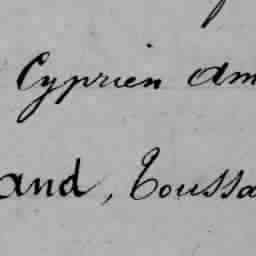 Cyprien Am
and, Toussa